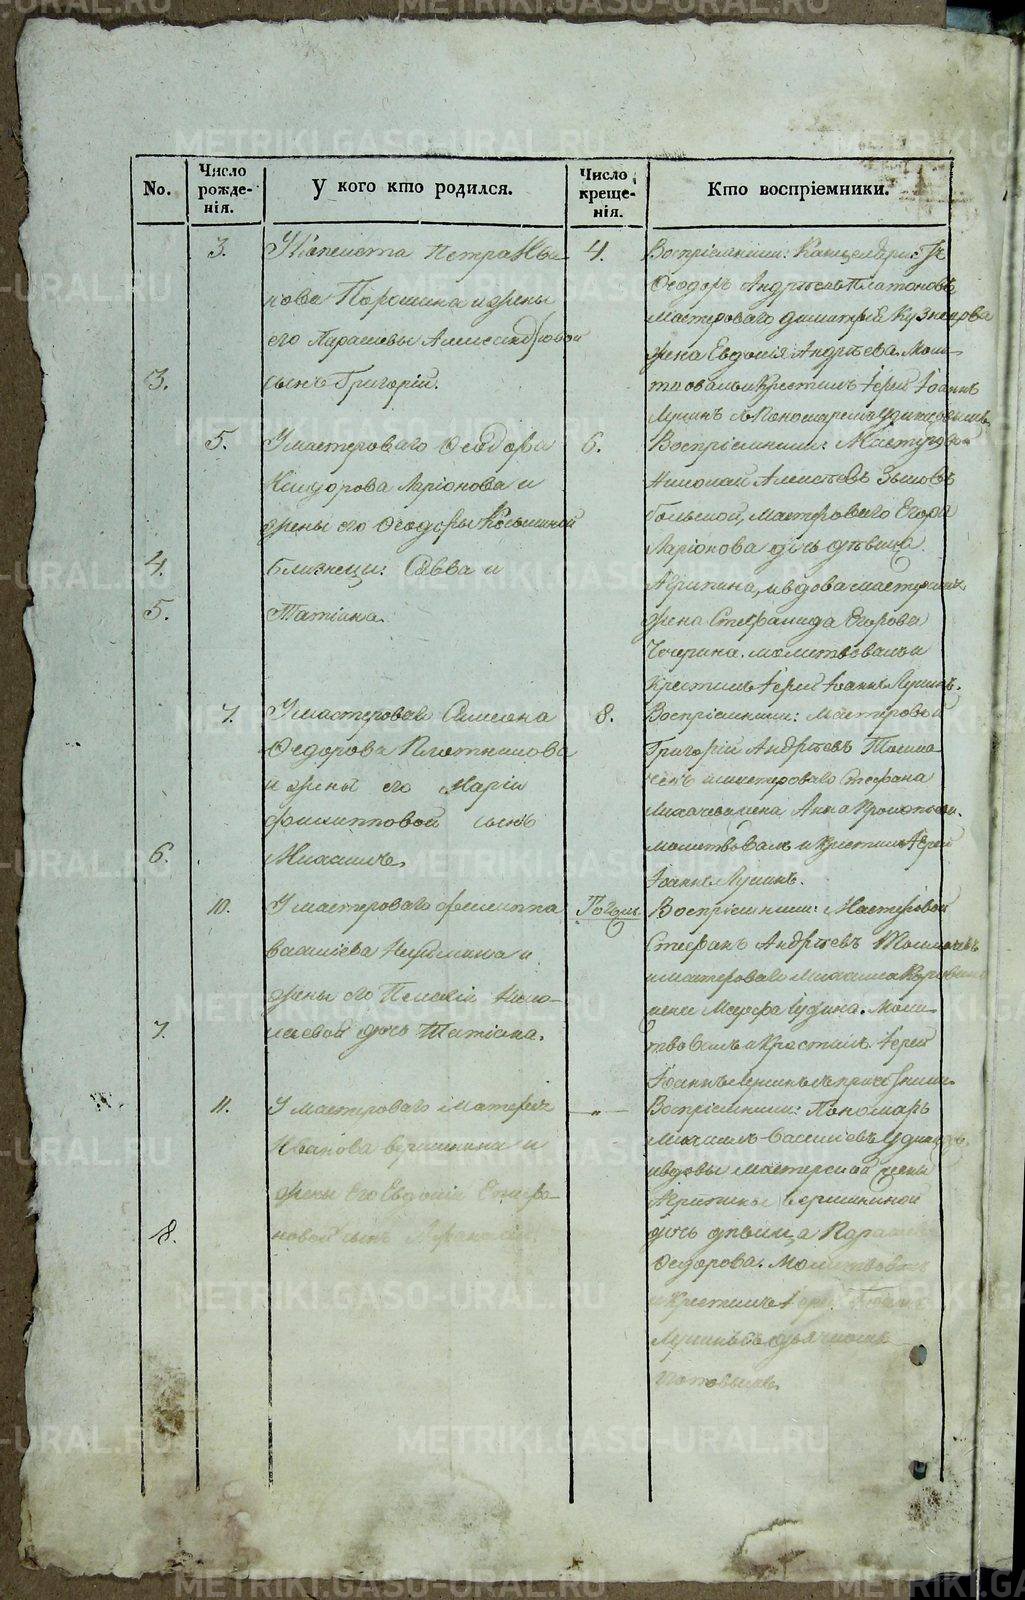 No.
Число рожде-нія.
У кого кто родился.
Число креще-нія.
Кто воспріемники.
3.
У Копеиста Петра Ива
нова Порошина и жены
его Парасковьи Александровой
3.
сынъ Григорій.
4.
Воспріемники: Канцеляри:
Ѳеодоръ Андреевъ Платоновъ,
мастероваго Димитрія Кузнецова
жена Евдокія Андреева. Моли-
твовалъ и крестилъ Іерей Іоаннъ
Лучинъ съ Пономаремъ
5.
У мастероваго Ѳеодора
Ларіонова и
жены его Ѳеодоры
4.
близнецы: Савва и
5.
Татіана.
6.
Воспріемники: Мастеровой
Николай Алексѣевъ Зыковъ
большой, мастероваго Егора
Ларіонова дочь дѣвица
Агрипина, и вдова мастерская
жена Стефанида Егорова
Чечерина. молитвовалъ и
крестилъ Іерей Іоаннъ Лучинъ.
7.
У мастероваго
Ѳедорова Плотникова
и жены его Маріи
Филипповой сынъ
6.
Михаилъ.
8.
Воспріемники: Мастеровой
Григорій Андреевъ Толма
чевъ и мастероваго Стефана
жена Анна
молитвовалъ и крестилъ Іерей
Іоаннъ Лучинъ.
10.
У мастероваго Филиппа
Васильева и
жены его Пелагіи Нико-
7.
лаевой дочь Татіана.
Тогожъ.
Воспріемники: Мастеровой
Стефанъ Андреевъ Толмачевъ
и мастероваго Михаила
жена Марфа Іудина. Моли-
твовалъ и крестилъ Іерей
Іоаннъ Лучинъ съ причетники.
11.
У мастероваго Матфея
Иванова Вершинина и
жены его Евдокіи Стефа-
8.
новой сынъ Афанасій.
— „ —
Воспріемники: Пономарь
Михаилъ Васильевъ
и вдовы мастерской жены
Агрипины Вершининой
дочь дѣвица
Ѳедорова. Молитвовалъ
и крестилъ Іерей Іоаннъ
Лучинъ съ дьячкомъ
METRIKI.GASO-URAL.RU